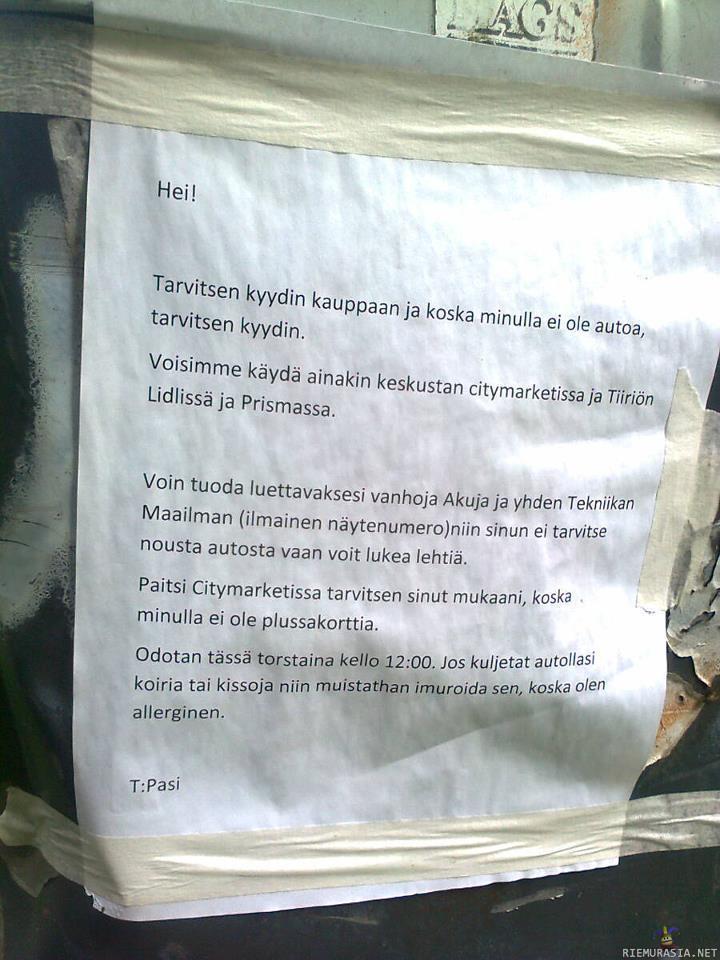 Hei!
Tarvitsen kyydin kauppaan ja koska minulla ei ole autoa,
tarvitsen kyydin.
Voisimme käydä ainakin keskustan citymarketissa ja Tiiriön
Lidlissä ja Prismassa.
Voin tuoda luettavaksesi vanhoja Akuja ja yhden Tekniikan
Maailman (ilmainen näytenumero)niin sinun ei tarvitse
nousta autosta vaan voit lukea lehtiä.
Paitsi Citymarketissa tarvitsen sinut mukaani, koska
minulla ei ole plussakorttia.
Odotan tässä torstaina kello 12:00. Jos kuljetat autollasi
koiria tai kissoja niin muistathan imuroida sen, koska olen
allerginen.
T:Pasi
RIEMURASIA.NET